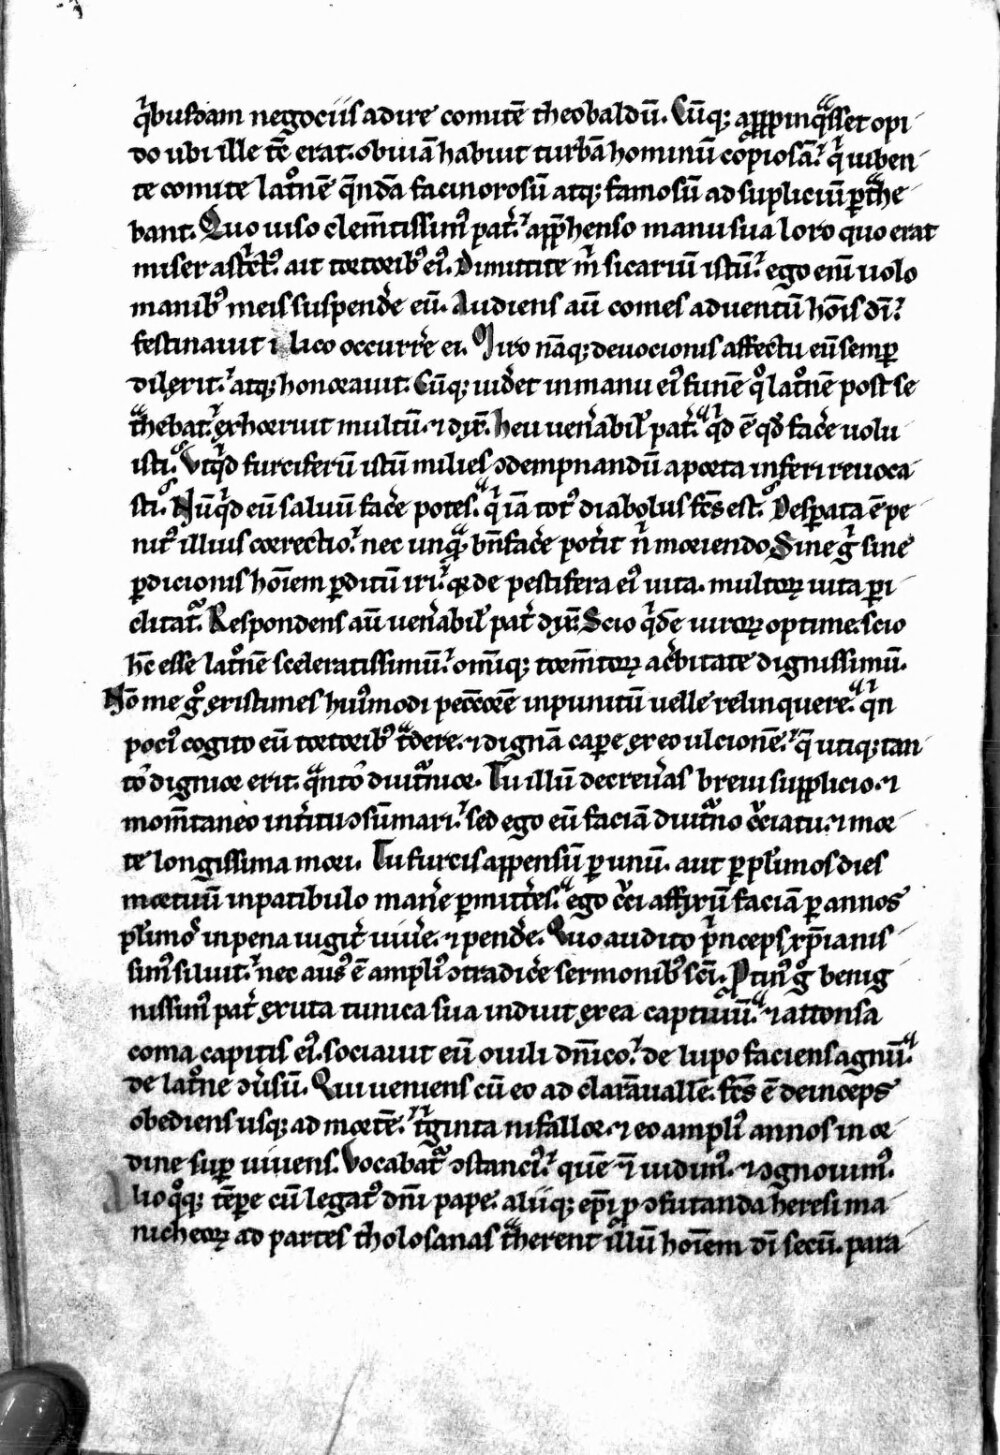 q̍busdam negociis adire comitē theobaldū. Cūq; apppinq̃sset opi
do ubi ille tc̄ erat. obuiā habuit turbā hominū copiosā. q̍ iuben
te comite latͦnē q̄ndā facinorosū atq; famosū ad supliciū ꝑthe
bant. Quo uiso clem̄tissimꝰ pat̍. app̄henso manu sua loro quo erat
miser ast̍ctꝰ. ait tortoribꝰ eiꝰ. Dimittite m̍ sicariū istū. ego eni̅ uolo
manibꝰ meis suspend̍e eū. Audiens aū comes aduentū hoı̄s dı̄.
festinauit illico occurr̍e ei. Miro nāq; deuocionis affectu eū semꝑ
dilexit. atq; honorauit. Cūq; uid̍et in manu eiꝰ funē qͦ latͦnē post se
t̃hebat. exhorruit multū. ⁊ dix̄. Heu uen̍abil̍ pat̍. q̍d ē qd̍ fac̍e uolu
isti. Vtq̍d furciferū istū milies ↄdempnandū a porta inferi reuoca
sti. Nūq̍d eū saluū fac̍e potes. q̍ iā totꝰ diabolus fc̄s est. Desꝑata ē pe
nitꝰ illius correctio. nec unq̃ bn̄fac̍e pot̍it n̍ moriendo. Sine g̍ sine
ꝑdicionis hoı̄em ꝑditū iri. q̍a de pestifera eiꝰ uita. multoꝝ uita ꝑi
clitat̃. Respondens aū uen̍abil̍ pat̍ dix̄. Scio q̍dē uiroꝝ optime. scio
hc̄ esse latͦnē sceleratissimū. omīq; torm̄toꝝ ac̍bitate dignissimū.
Nō me g̍ existimes huiꝰmodi peccc̄orē inpunitū uelle relinquere. q̍n
pociꝰ cogito eū tortoribꝰ t̃dere. ⁊ dignā capere ex eo ulcionē. q̄ utiq; tan
to dignior erit. q̃nto diuit̃nior. Tu illū decreu̍as breui supplicio. ⁊
mom̄taneo int̍itu ↄsūmari. sed ego eū faciā diut̃no c̍ciatu. ⁊ mor
te longissima mori. Tu furcis appensū ꝑ unū. aut ꝑ pl̍imos dies
mortuū in patibulo man̍e ꝑmitt̍es. ego c̍ci affixū faciā ꝑ annos
pl̍imos in pena iugit̍ uiu̍e. ⁊ pend̍e. Quo audito p̍nceps xp̄ianis
simꝰ siluit. nec ausꝰ ē ampliꝰ ↄtradic̍e sermonibꝰ sc̄i. Ptinꝰ g̍ benig
nissimꝰ pat̍ exuta tunica sua induit ex ea captiuū. ⁊ attonsa
coma capitis eiꝰ. sociauit eū ouili dn̄ico. de lupo faciens agnū.
de latͦne ↄu̍sū. Qui ueniens cū eo ad claramuallē. fc̄s ē deinceps
obediens usq; ad mortē. t̍ginta ni fallor. ⁊ eo ampliꝰ annos in or
dine suꝑ uiuens. Vocabat̃ ↄstanciꝰ. quē ⁊ uidimꝰ. ⁊ ↄgnouimꝰ.
Alio qͦq; tēpore cū legatꝰ dn̄i pape. aliiq; ep̄i pro ↄfutanda heresi ma
nicheoꝝ ad partes tholosanas t̃herent illū hoı̄em dı̄ secū. para